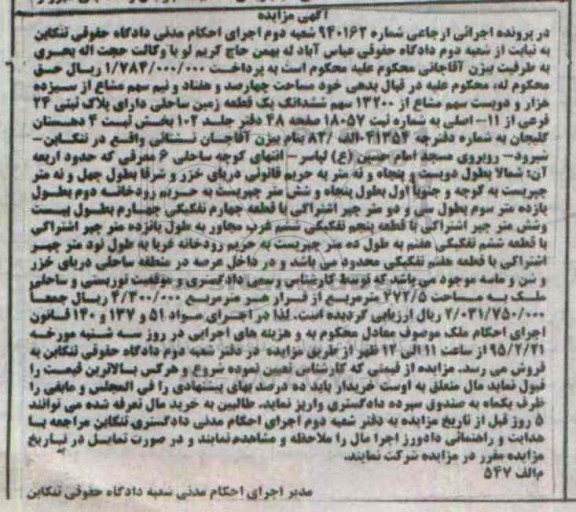 آگهی مزایده
در پرونده اجرائی ارجاعی شماره ۹۴۰۱۶۲ شعبه دوم اجرای احکام مدنی دادگاه حقوقی تنکابن
به نیابت از شعبه دوم دادگاه حقوقی عباس آباد له بهمن حاج کریم لو با وکالت حجت اله بحری
به طرفیت بیژن آقاجانی محکوم علیه محکوم است به پرداخت ۱/۷۸۴/۰۰۰/۰۰۰ ریال حق
محکوم له، محکوم علیه در قبال بدهی خود مساحت چهارصد و هفتاد و نیم سهم مشاع از سیزده
هزار و دویست سهم مشاع از ۱۳۲۰۰ سهم ششدانگ یک قطعه زمین ساحلی دارای پلاک ثبتی ۲۴
فرعی از ۱۱- اصلی به شماره ثبت ۱۸۰۵۷ صفحه ۴۸ دفتر جلد ۱۰۲ بخش ثبت ۴ دهستان
گلیجان به شماره دفترچه ۴۱۳۵۴-الف/۸۲ بنام بیژن آقاجان نشتائی واقع در تنکابن-
شیرود- روبروی مسجد امام حسین (ع) لپاسر- انتهای کوچه ساحلی ۶ معرفی که حدود اربعه
آن: شمالا بطول دویست و پنجاه و نه متر به حریم قانونی دریای خزر و شرقا بطول چهل و نه متر
چپریست به کوچه و جنوبا اول بطول پنجاه و شش متر چپریست به حریم رودخانه دوم بطول
یازده متر سوم بطول سی و دو متر چپر اشتراکی با قطعه چهارم تفکیکی چهارم بطول بیست
وشش متر چپر اشتراکی با قطعه پنجم تفکیکی ششم غرب مجاور به طول پانزده متر چپر اشتراکی
با قطعه ششم تفکیکی هفتم به طول ده متر چپریست به حریم رودخانه غربا به طول نود متر چپر
اشتراکی با قطعه هفتم تفکیکی محدود می باشد و در داخل عرصه در منطقه ساحلی دریای خزر
و شن و ماسه موجود می باشد که توسط کارشناس رسمی دادگستری و موقعیت توریستی و ساحلی
ملک به مساحت ۴۷۲/۵ مترمربع از قرار هر مترمربع ۴/۳۰۰/۰۰۰ ریال جمعا
۲/۰۳۱/۷۵۰/۰۰۰ ریال ارزیابی گردیده است. لذا در اجرای مواد ۵۱ و ۱۳۷ و ۱۴۰ قانون
اجرای احکام ملک موصوف معادل محکوم به و هزینه های اجرایی در روز سه شنبه مورخه
۹۵/۲/۲۱ از ساعت ۱۱ الی ۱۲ ظهر از طریق مزایده در دفتر شعبه دوم دادگاه حقوقی تنکابن به
فروش می رسد. مزایده از قیمتی که کارشناس تعیین نموده شروع و هرکس بالاترین قیمت را
قبول نماید مال متعلق به اوست خریدار باید ده درصد بهای پیشنهادی را فی المجلس و مابقی را
ظرف یکماه به صندوق سپرده دادگستری واریز نماید. طالبین به خرید مال تعرفه شده می توانند
۵ روز قبل از تاریخ مزایده به دفتر شعبه دوم اجرای احکام مدنی دادگستری تنکابن مراجعه با
هدایت و راهنمائی دادورز اجرا مال را ملاحظه و مشاهده نمایند و در صورت تمایل در تاریخ
مزایده مقرر در مزایده شرکت نمایند.
م الف ۵۴۷
مدیر اجرای احکام مدنی شعبه دادگاه حقوقی تنکابن